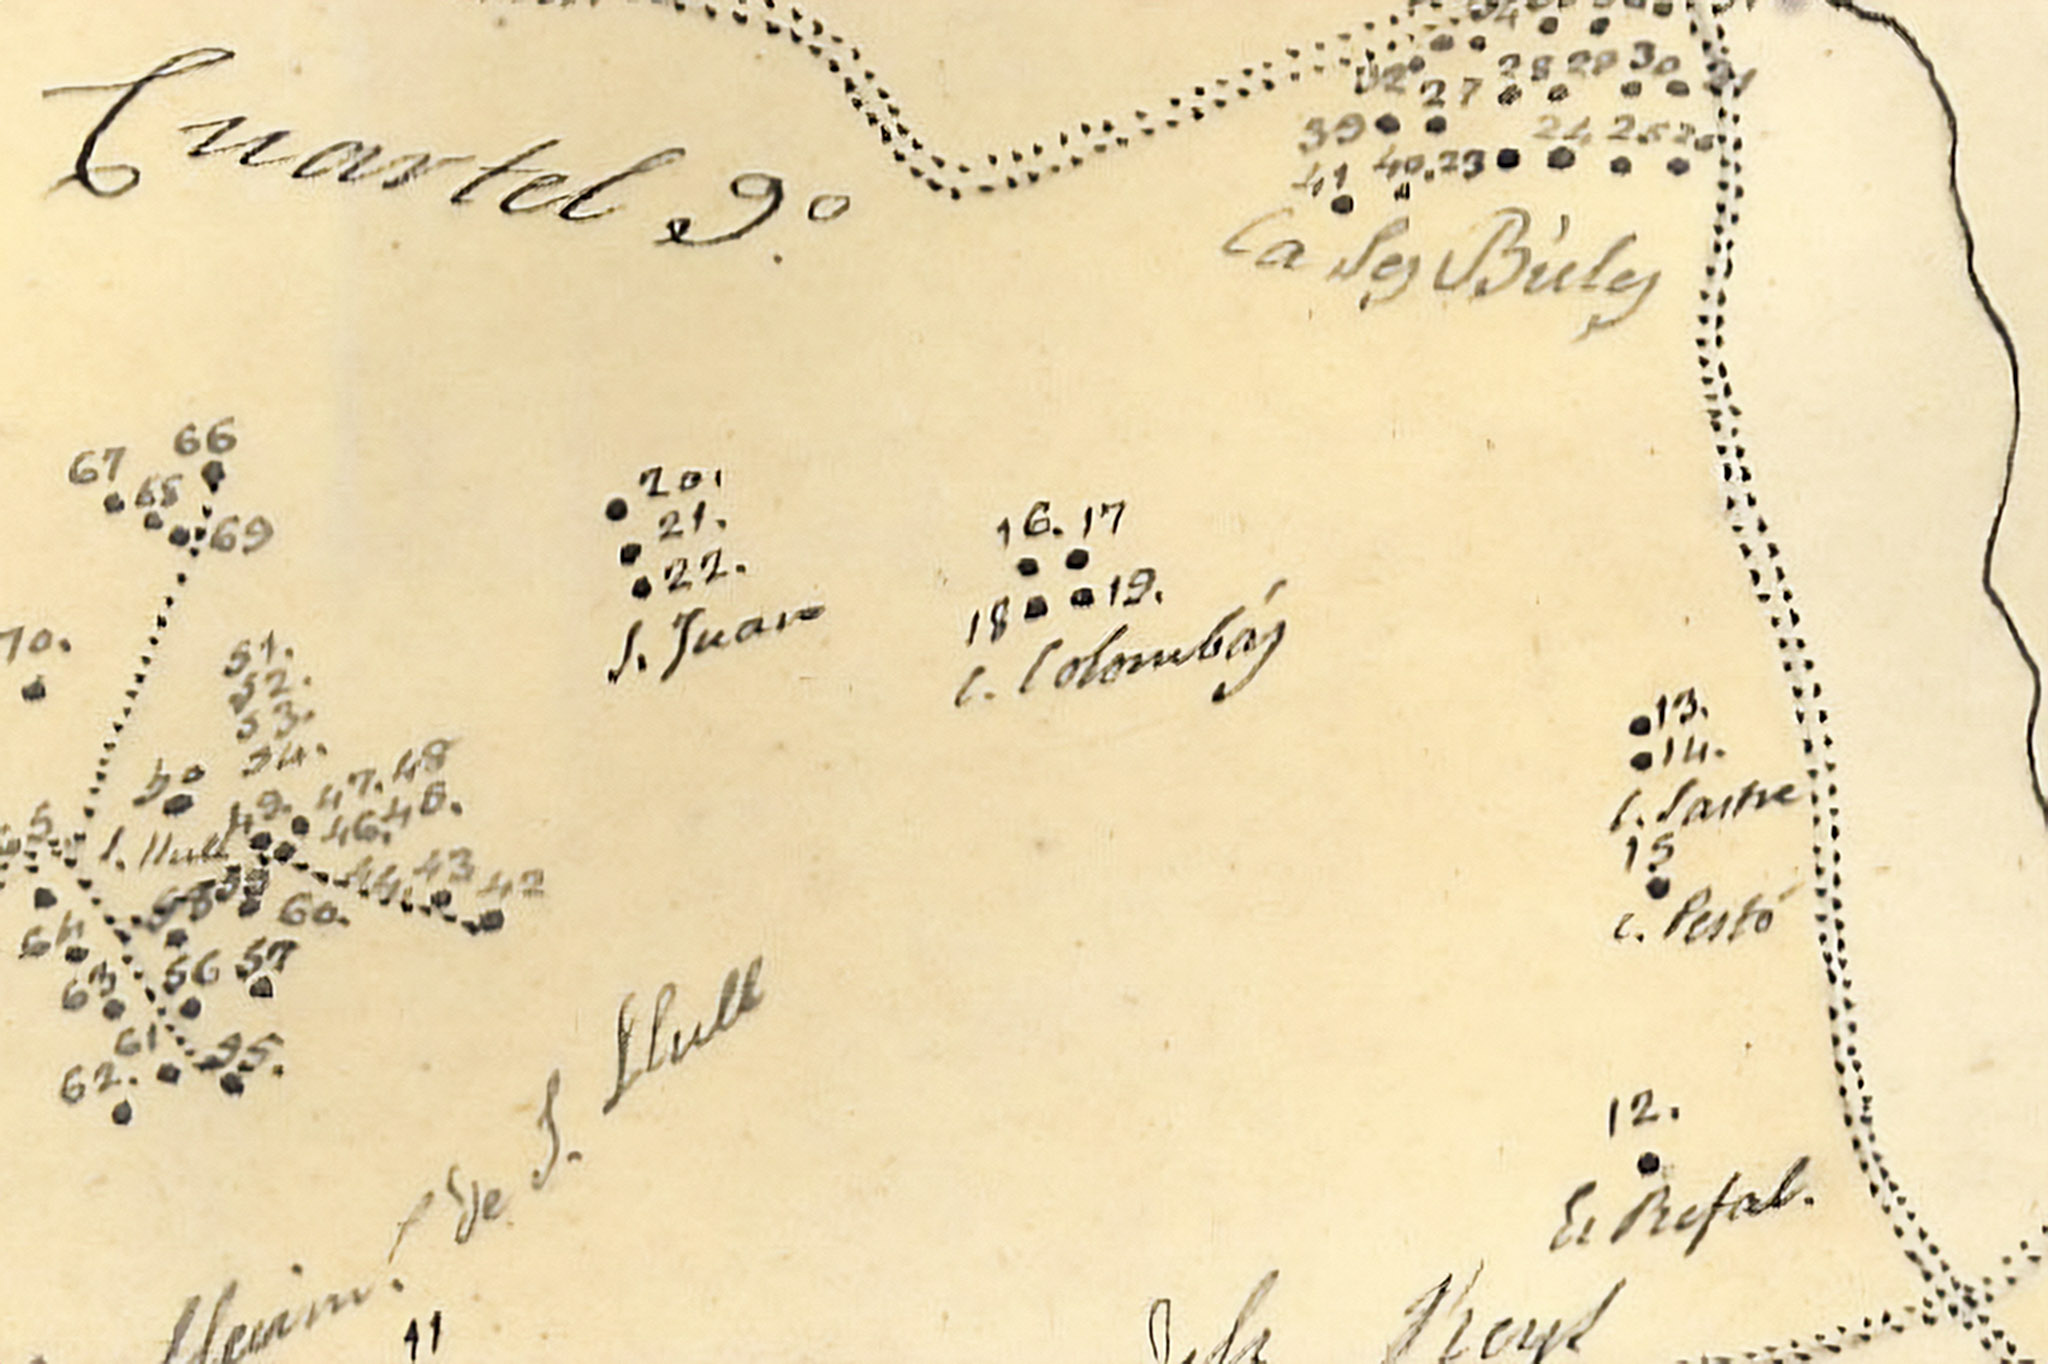 Cuartel 9.º
28 29 30 31
32 27
39 24 25 26
41 40. 23
Ca Ses Búles
66
67
68
69
20.
21.
22.
S. Juan
16. 17
18 19.
C. Colombás
70.
51.
52.
53.
54.
50
47. 48
49. 46. 45.
S. Llull
44. 43 42
58
60.
64
63 56 57
61
62. 55.
13.
14.
C. Sastre
15
C. Pestó
12.
El Rafal.
de S. Llull
11